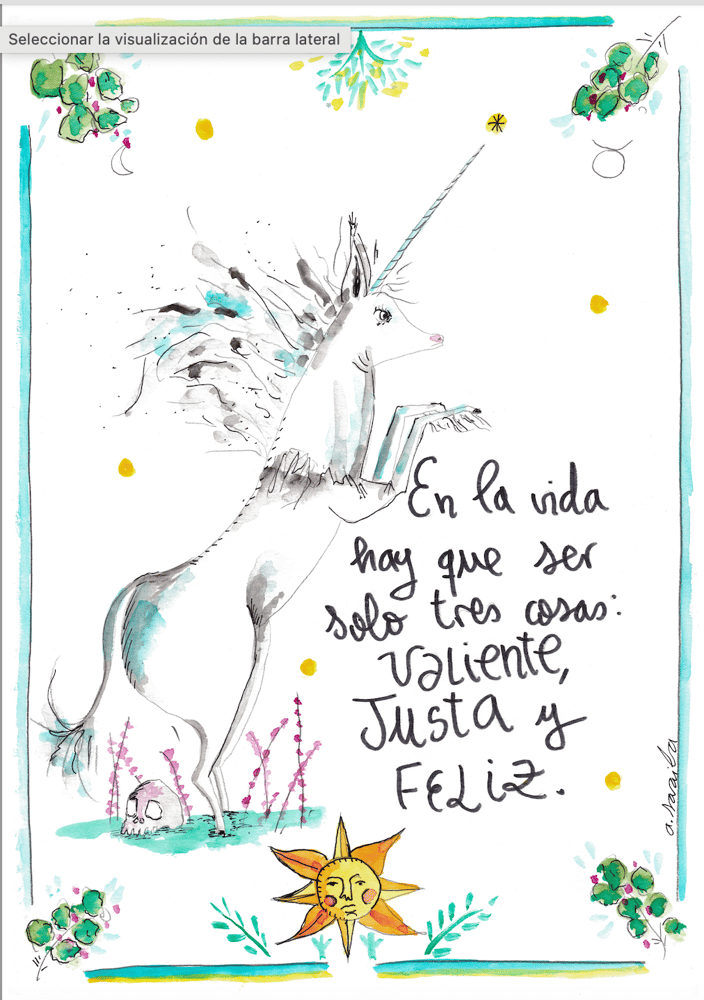 Seleccionar la visualización de la barra lateral
En la vida
hay que ser
solo tres cosas:
Valiente,
Justa y
FELiZ.